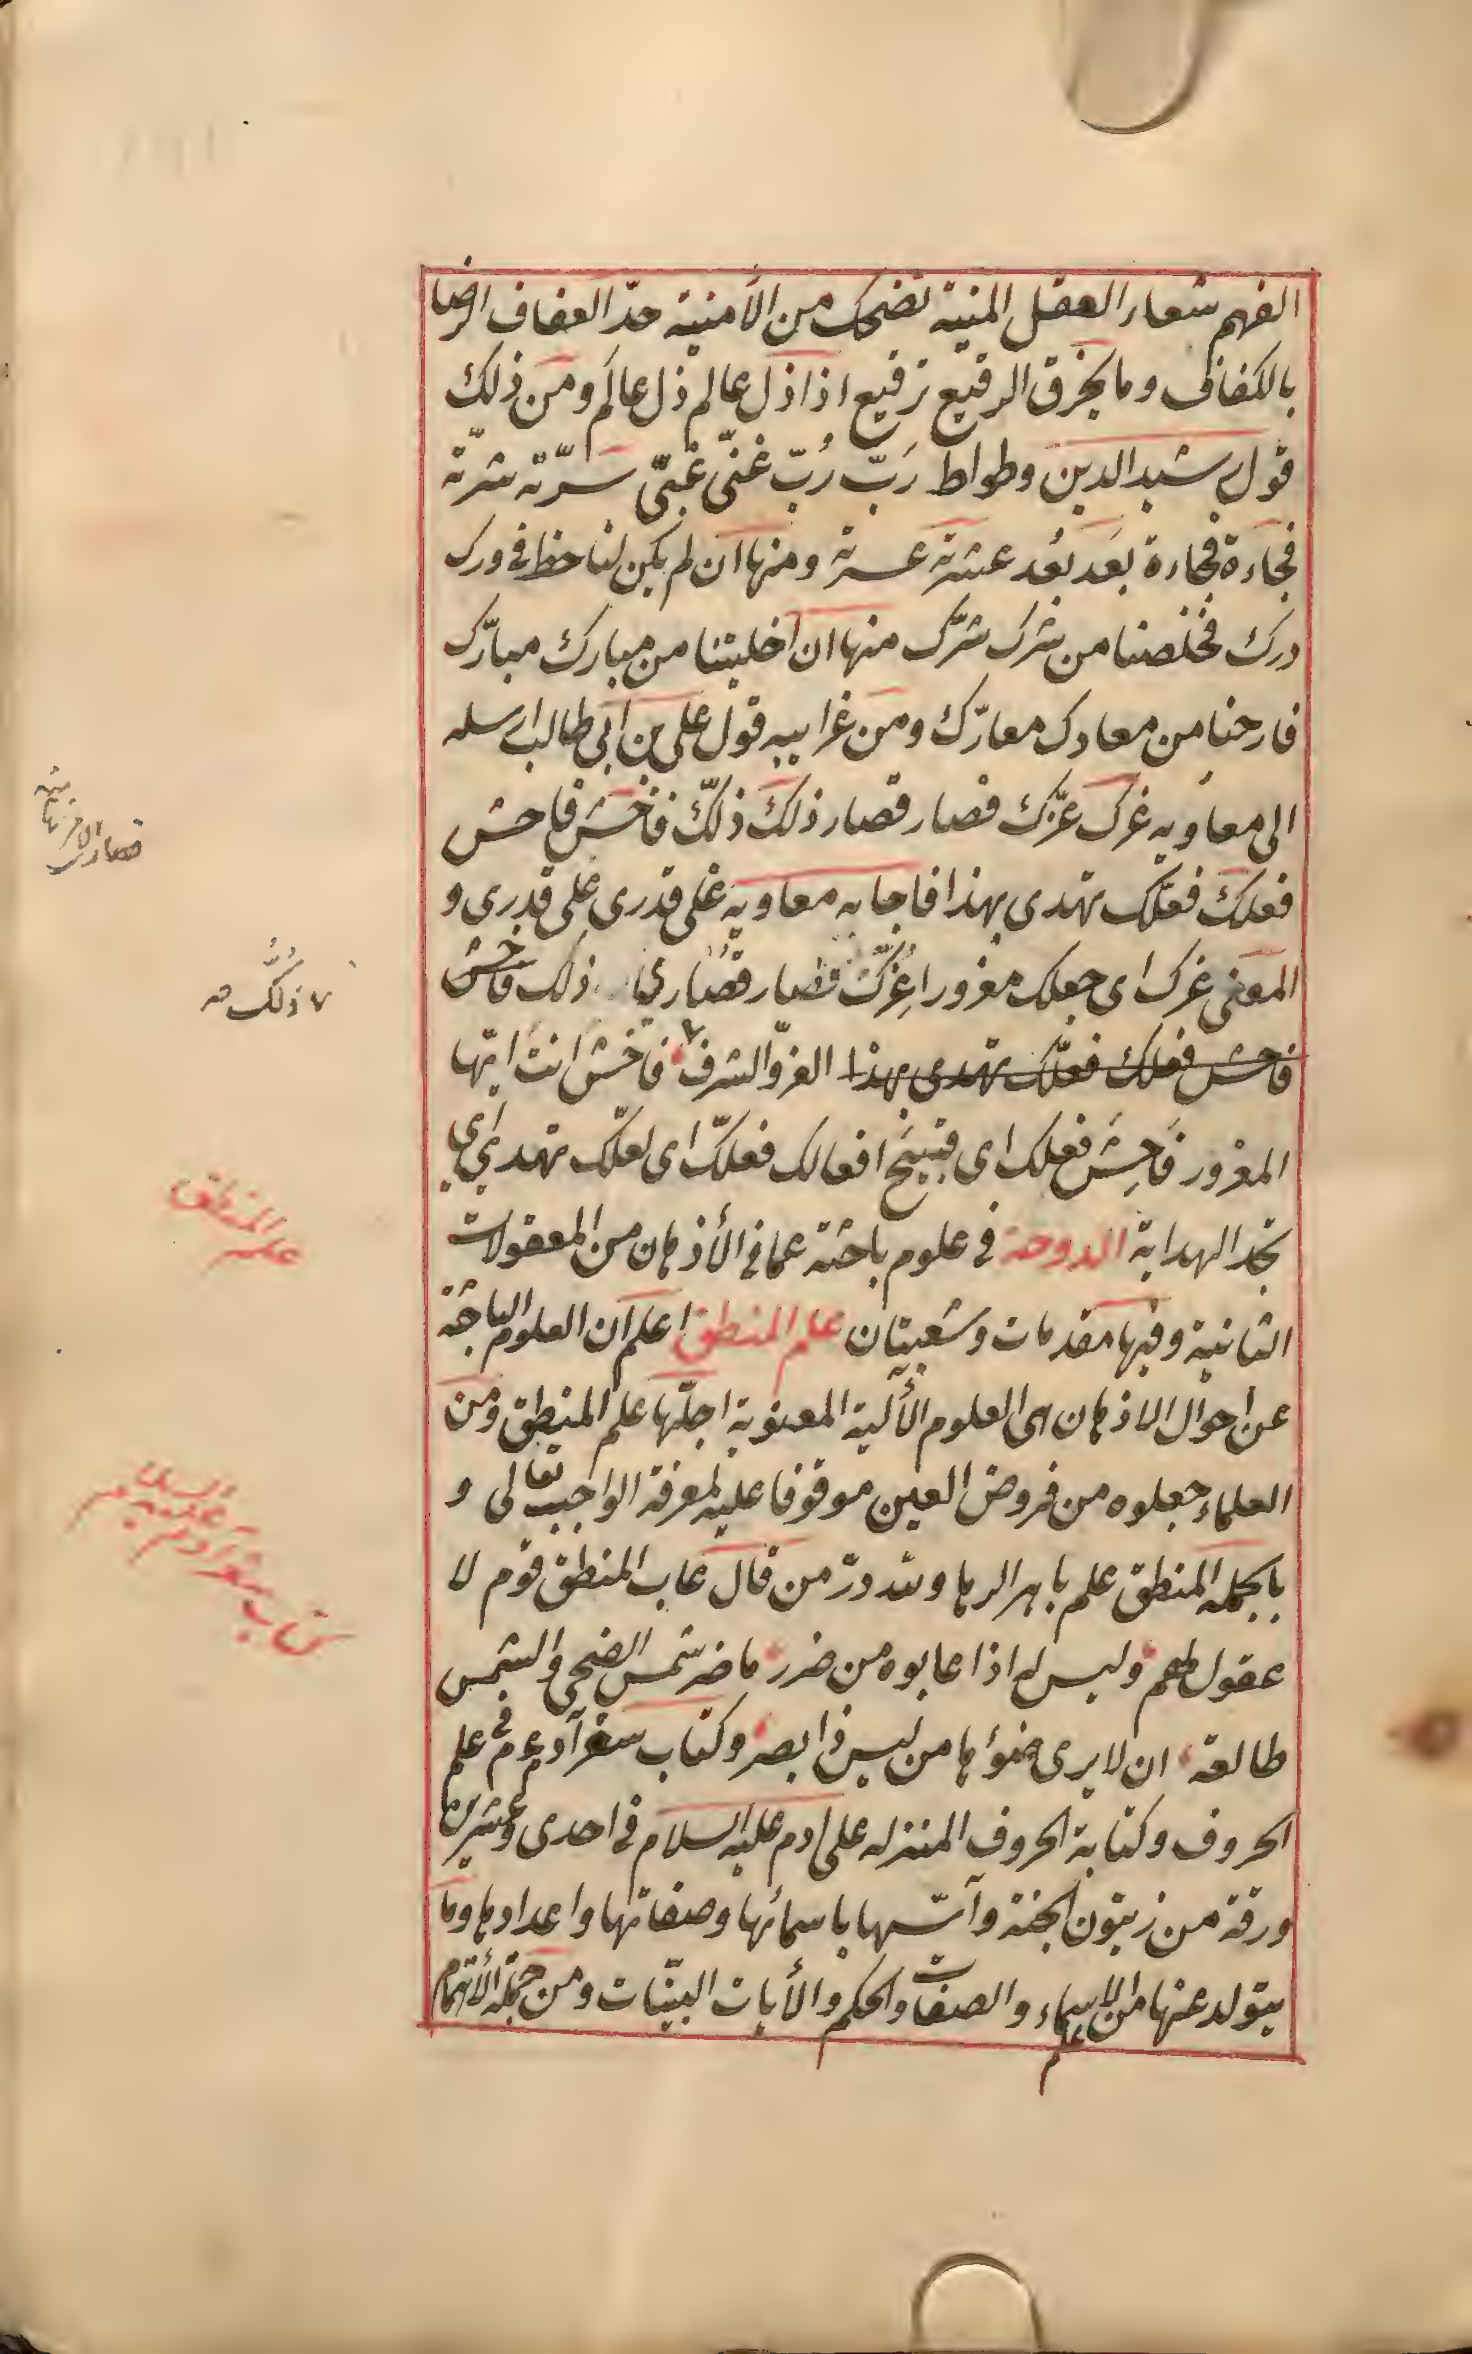 الفهم شعار العقل المنية تضحك من الأمنية حدّ العفاف الرضا
بالكفاف وما يخرق الرقيع ترقيع اذا ذل عالم ذل عالم ومن ذلك
قول رشيد الدين وطواط رَبّ رُبّ غنّى غبىّ سرّته شرّته
فجاءة فجاءة بعَد بُعد عشرته عسرته ومنها ان لم يكن لنا حظ في ورك
درك فخلصنا من شرك شرّك منها ان اخليتنا من مبارك مبارّك
فارحنا من معادك معارّك ومن غرايبه قول على بن ابي طالب ارسله
الى معاويه غرك عزّك فصار قصار ذلك ذلّك فاخش فاحش
فعلك فعلّك تهدى بهذا فاجابه معاويه غلى قدرى على قدرى و
المعنى غرك اى جعلك مغرورا عُزّك قصار ذلك فاخش
فاحش فعلك فعلّك تهدى بهذا العزّ والشرف فاخش انت ايّها
المغرور فَاحِشَ فعلك اى قبيح افعالك فعلّك اى لعلّك تهدى اى
تجد الهداية الدوحة في علوم باحثة عما في الأذهان من المعقولات
الثانية وفيها مقدمات وشعبتان علم المنطق اعلم ان العلوم الباحثة
عن احوال الاذهان هى العلوم الألية المعنوية اجلّها علم المنطق ومن
العلماء جعلوه من فروض العين موقوفا عليه لمعرفة الواجب تعالى و
بالجمله المنطق علم باهر الرها ولله درّ من قال عاب المنطق قوم لا
عقول لهم وليس له اذا عابوه من ضرر ما ضر شمس الضحى والشمس
طالعة ان لا يرى ضوٴها من ليس ذا بصر وكتاب سفر آدم ع م في علم
الحروف وكتابة الحروف المنزله على ادم عليه السلام في احدى وعشرين
ورقة من زيتون الجنة وآسّها باسمائها وصفاتها واعدادها وما
يتولد عنها من الاسماء والصفات والحكم والأيات البيّنات ومن جملة الأتمام
علم
قصارك
٧ ذلّك صه
علم المنطق
كتاب سفر ادم عليه السلام